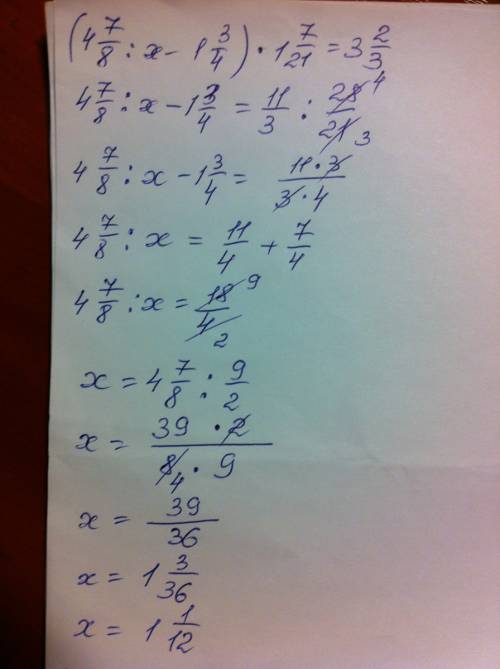 (4 7/8 : x - 1 3/4) · 1 7/21 = 3 2/3
4 7/8 : x - 1 3/4 = 11/3 : 28/21 4 3
4 7/8 : x - 1 3/4 = 11·3/3·4
4 7/8 : x = 11/4 + 7/4
4 7/8 : x = 18/4 9 2
x = 4 7/8 : 9/2
x = 39·2/8·9 4
x = 39/36
x = 1 3/36
x = 1 1/12